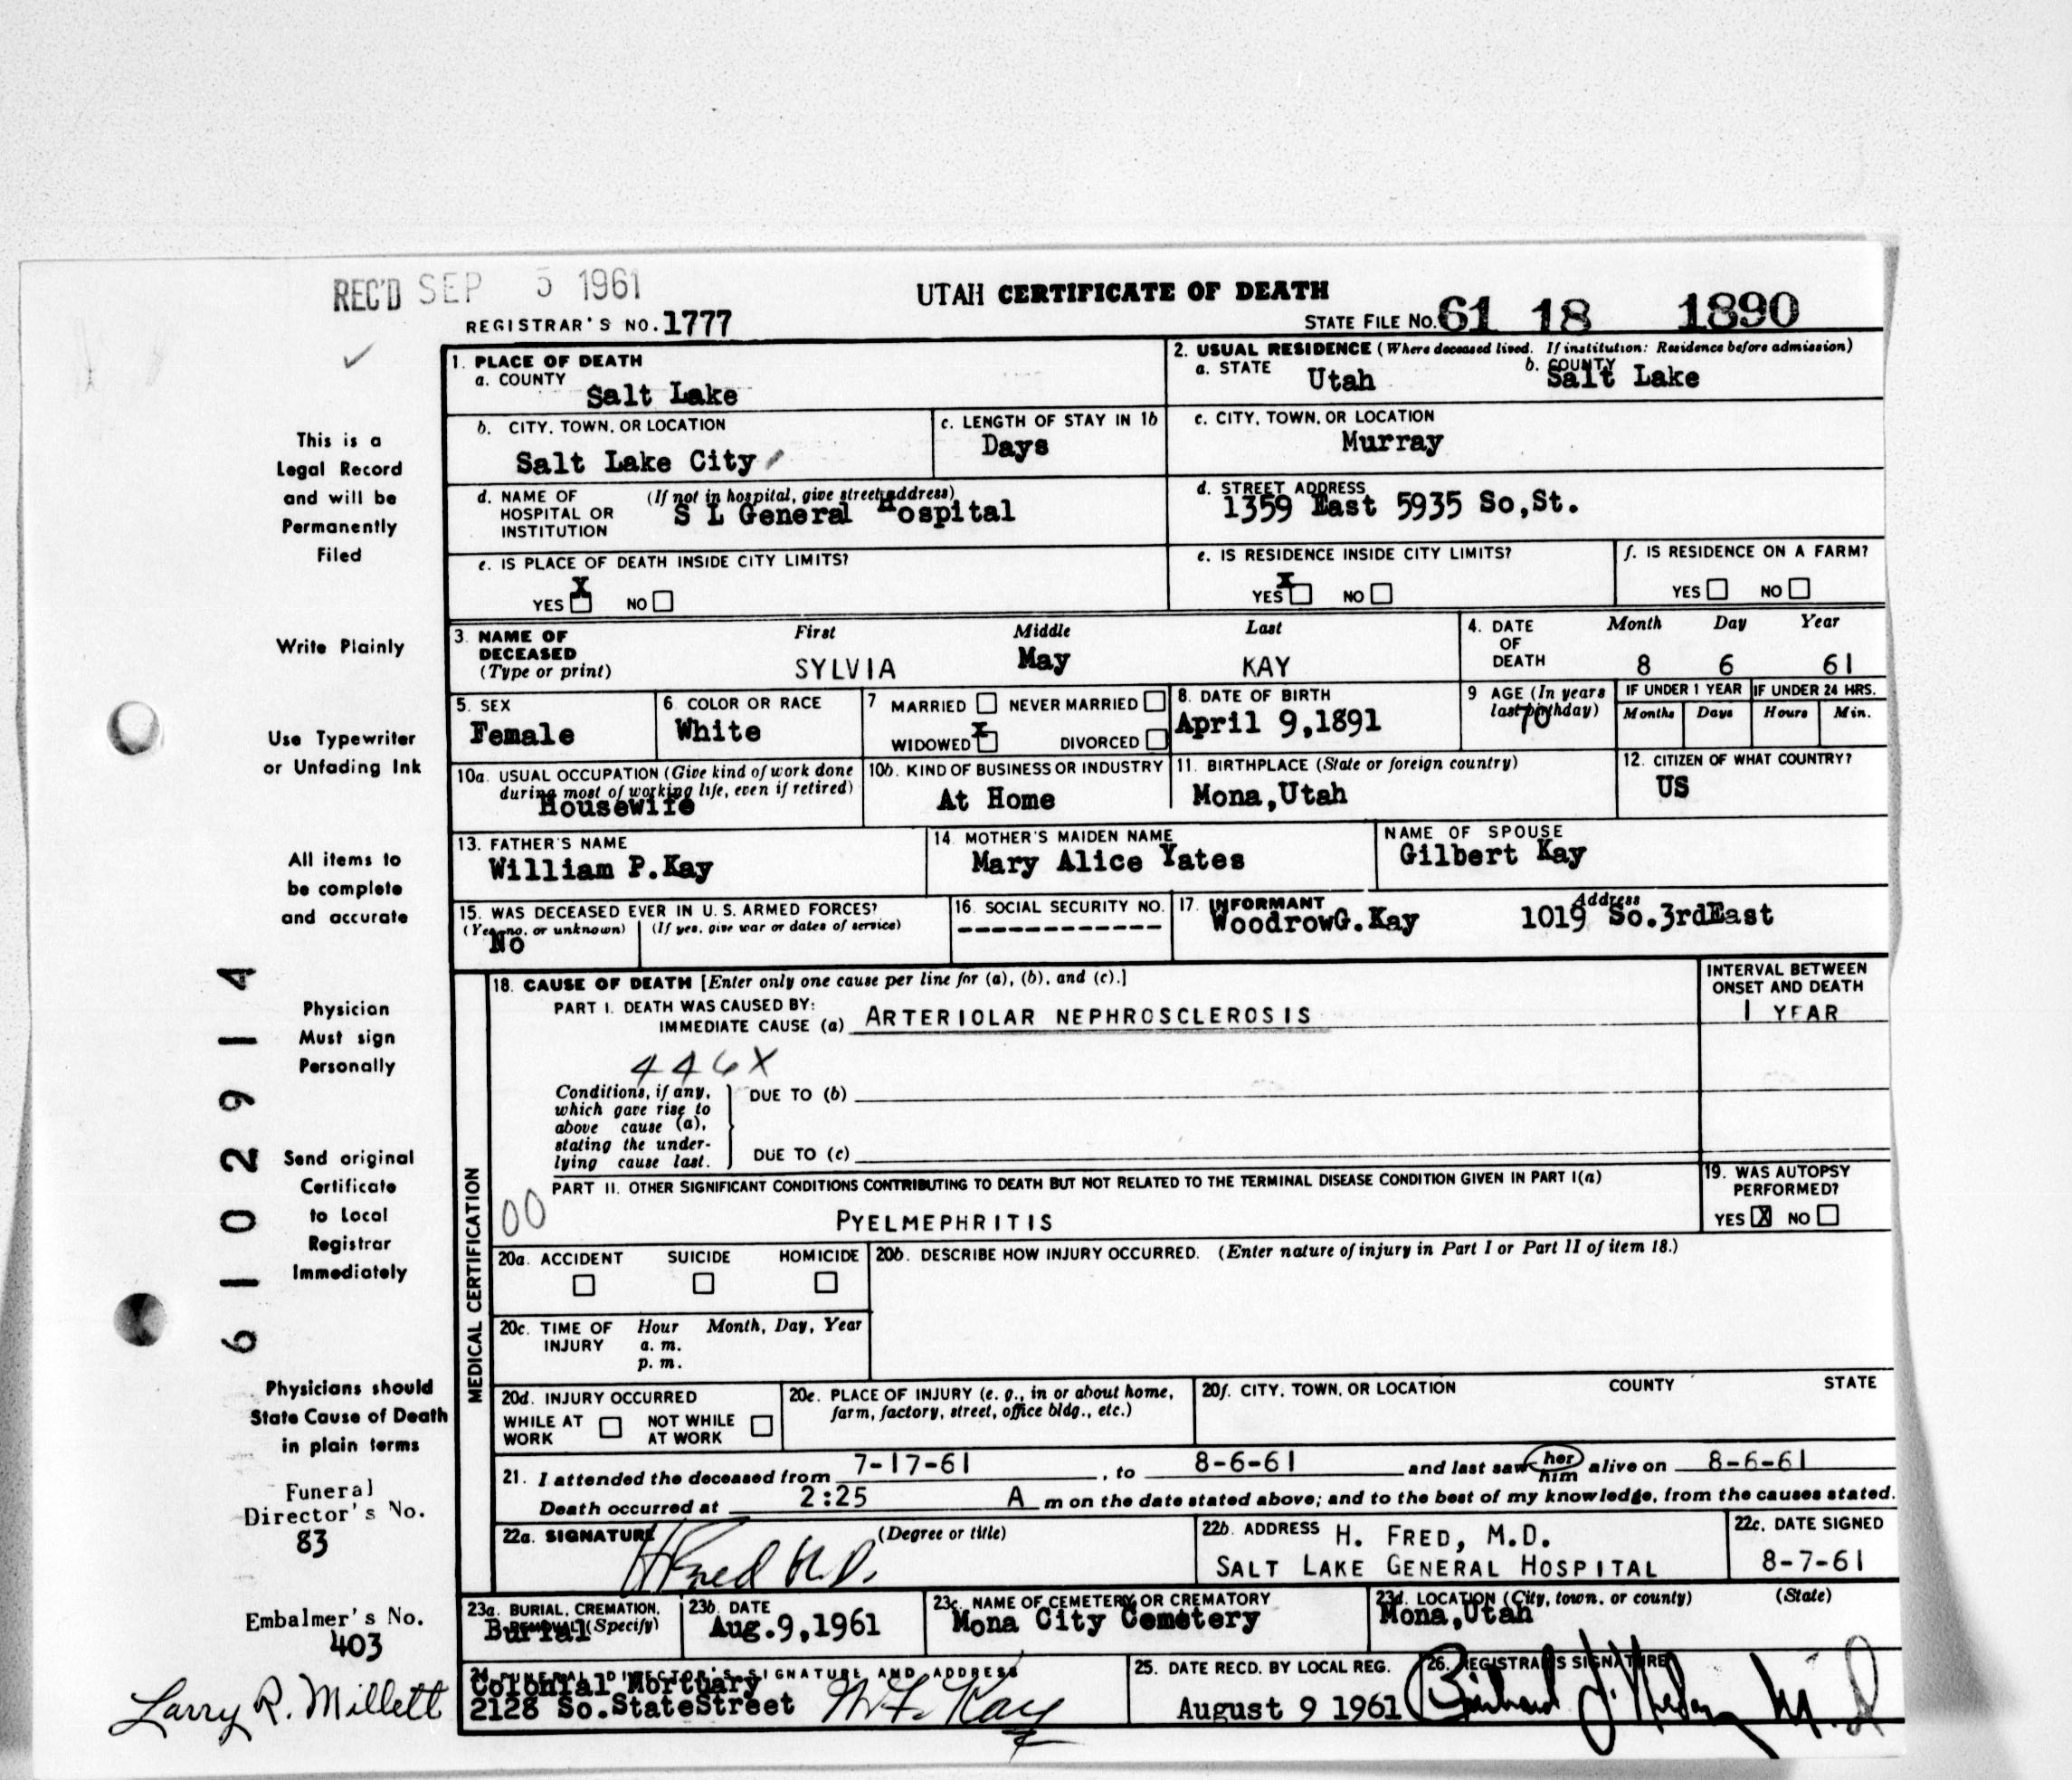 REC'D SEP 5 1961
UTAH CERTIFICATE OF DEATH
REGISTRAR'S NO. 1777
STATE FILE NO. 61 18 1890
1. PLACE OF DEATH
a. COUNTY
Salt Lake
2. USUAL RESIDENCE (Where deceased lived. If institution: Residence before admission)
a. STATE Utah b. COUNTY Salt Lake
b. CITY, TOWN, OR LOCATION
Salt Lake City
c. LENGTH OF STAY IN 1b
Days
c. CITY, TOWN, OR LOCATION
Murray
d. NAME OF HOSPITAL OR INSTITUTION (If not in hospital, give street address)
S L General Hospital
d. STREET ADDRESS
1359 East 5935 So,St.
e. IS PLACE OF DEATH INSIDE CITY LIMITS?
YES X NO
e. IS RESIDENCE INSIDE CITY LIMITS?
YES X NO
f. IS RESIDENCE ON A FARM?
YES NO
3. NAME OF DECEASED (Type or print)
First Middle Last
SYLVIA May KAY
4. DATE OF DEATH
Month Day Year
8 6 61
5. SEX
Female
6. COLOR OR RACE
White
7 MARRIED NEVER MARRIED
WIDOWED X DIVORCED
8. DATE OF BIRTH
April 9,1891
9 AGE (In years last birthday)
70
IF UNDER 1 YEAR
Months Days
IF UNDER 24 HRS.
Hours Min.
10a. USUAL OCCUPATION (Give kind of work done during most of working life, even if retired)
Housewife
10b. KIND OF BUSINESS OR INDUSTRY
At Home
11. BIRTHPLACE (State or foreign country)
Mona,Utah
12. CITIZEN OF WHAT COUNTRY?
US
13. FATHER'S NAME
William P.Kay
14. MOTHER'S MAIDEN NAME
Mary Alice Yates
NAME OF SPOUSE
Gilbert Kay
15. WAS DECEASED EVER IN U.S. ARMED FORCES?
(Yes, no, or unknown) (If yes, give war or dates of service)
No
16. SOCIAL SECURITY NO.
------------
17. INFORMANT Address
WoodrowG.Kay 1019 So.3rdEast
MEDICAL CERTIFICATION
18. CAUSE OF DEATH [Enter only one cause per line for (a), (b), and (c).]
INTERVAL BETWEEN ONSET AND DEATH
PART I. DEATH WAS CAUSED BY:
IMMEDIATE CAUSE (a) ARTERIOLAR NEPHROSCLEROSIS
1 YEAR
446X
Conditions, if any, which gave rise to above cause (a), stating the underlying cause last.
DUE TO (b)
DUE TO (c)
PART II. OTHER SIGNIFICANT CONDITIONS CONTRIBUTING TO DEATH BUT NOT RELATED TO THE TERMINAL DISEASE CONDITION GIVEN IN PART I(a)
00
PYELMEPHRITIS
19. WAS AUTOPSY PERFORMED?
YES X NO
20a. ACCIDENT SUICIDE HOMICIDE
20b. DESCRIBE HOW INJURY OCCURRED. (Enter nature of injury in Part I or Part II of item 18.)
20c. TIME OF INJURY Hour Month, Day, Year
a. m.
p. m.
20d. INJURY OCCURRED
WHILE AT WORK NOT WHILE AT WORK
20e. PLACE OF INJURY (e. g., in or about home, farm, factory, street, office bldg., etc.)
20f. CITY, TOWN, OR LOCATION COUNTY STATE
21. I attended the deceased from 7-17-61, to 8-6-61 and last saw her him alive on 8-6-61
Death occurred at 2:25 A m on the date stated above; and to the best of my knowledge, from the causes stated.
22a. SIGNATURE (Degree or title)
H Fred M.D.
22b. ADDRESS H. FRED, M.D.
SALT LAKE GENERAL HOSPITAL
22c. DATE SIGNED
8-7-61
23a. BURIAL, CREMATION, REMOVAL (Specify)
Burial
23b. DATE
Aug.9,1961
23c. NAME OF CEMETERY OR CREMATORY
Mona City Cemetery
23d. LOCATION (City, town, or county) (State)
Mona,Utah
24 FUNERAL DIRECTOR'S SIGNATURE AND ADDRESS
Colonial Mortuary
2128 So.StateStreet
25. DATE RECD. BY LOCAL REG.
August 9 1961
26. REGISTRAR'S SIGNATURE
This is a
Legal Record
and will be
Permanently
Filed
Write Plainly
Use Typewriter
or Unfading Ink
All items to
be complete
and accurate
Physician
Must sign
Personally
Send original
Certificate
to Local
Registrar
Immediately
Physicians should
State Cause of Death
in plain terms
Funeral
Director's No.
83
Embalmer's No.
403
Larry R. Millett
61029 14